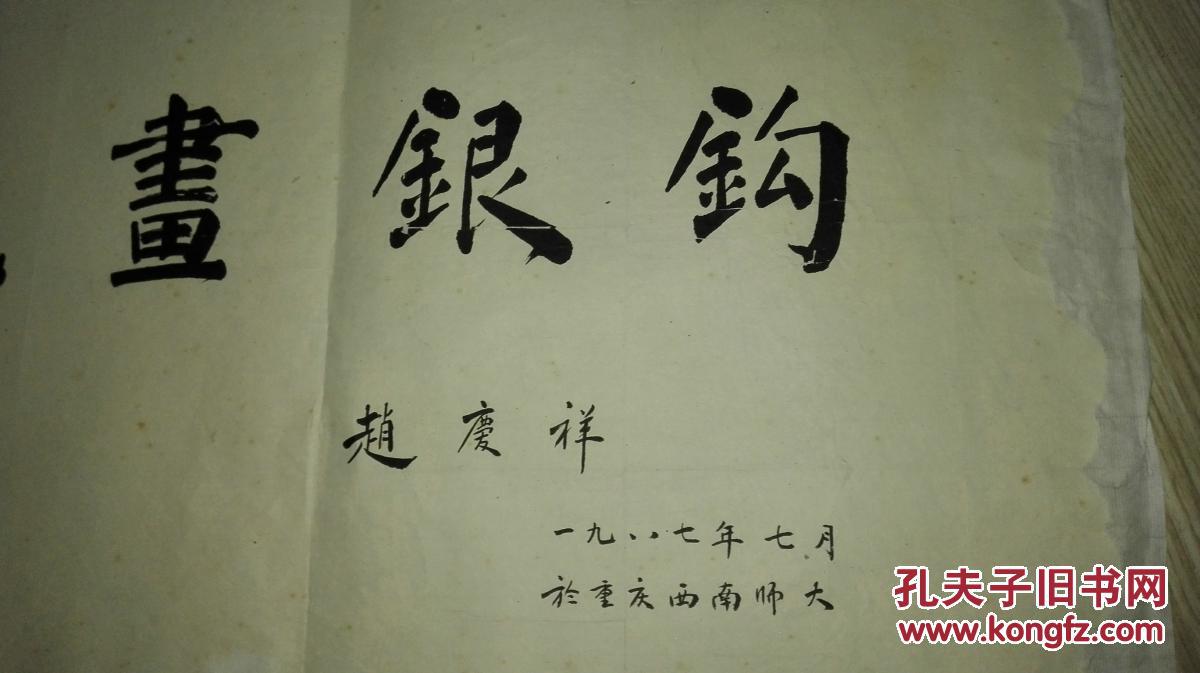 畫銀鈎
趙慶祥
一九八七年七月
於重庆西南师大
孔夫子旧书网
www.kongfz.com